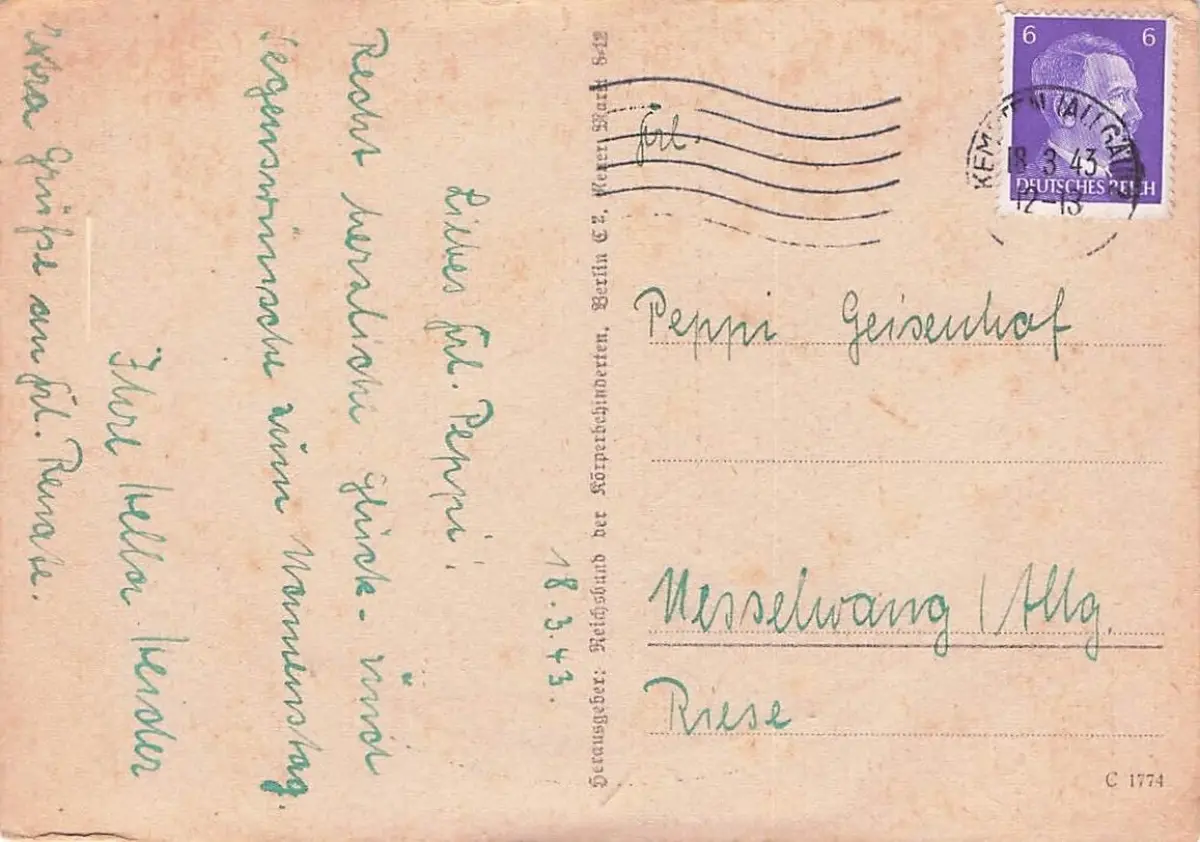 18.3.43.
Liebes Frl. Peppi!
Recht herzliche Glück- und
Segenswünsche zum Namenstag.
Ihre Hella
Grüße an Frl. Renate.
Herausgeber: Reichsbund der Körperbehinderten, Berlin C 2, Neuer Markt 8-12
6 6
DEUTSCHES REICH
KEMPTEN (ALLGÄU)
18 3 43
12-13
Frl.
Peppi Geisenhof
Nesselwang /Allg.
Riese
C 1774